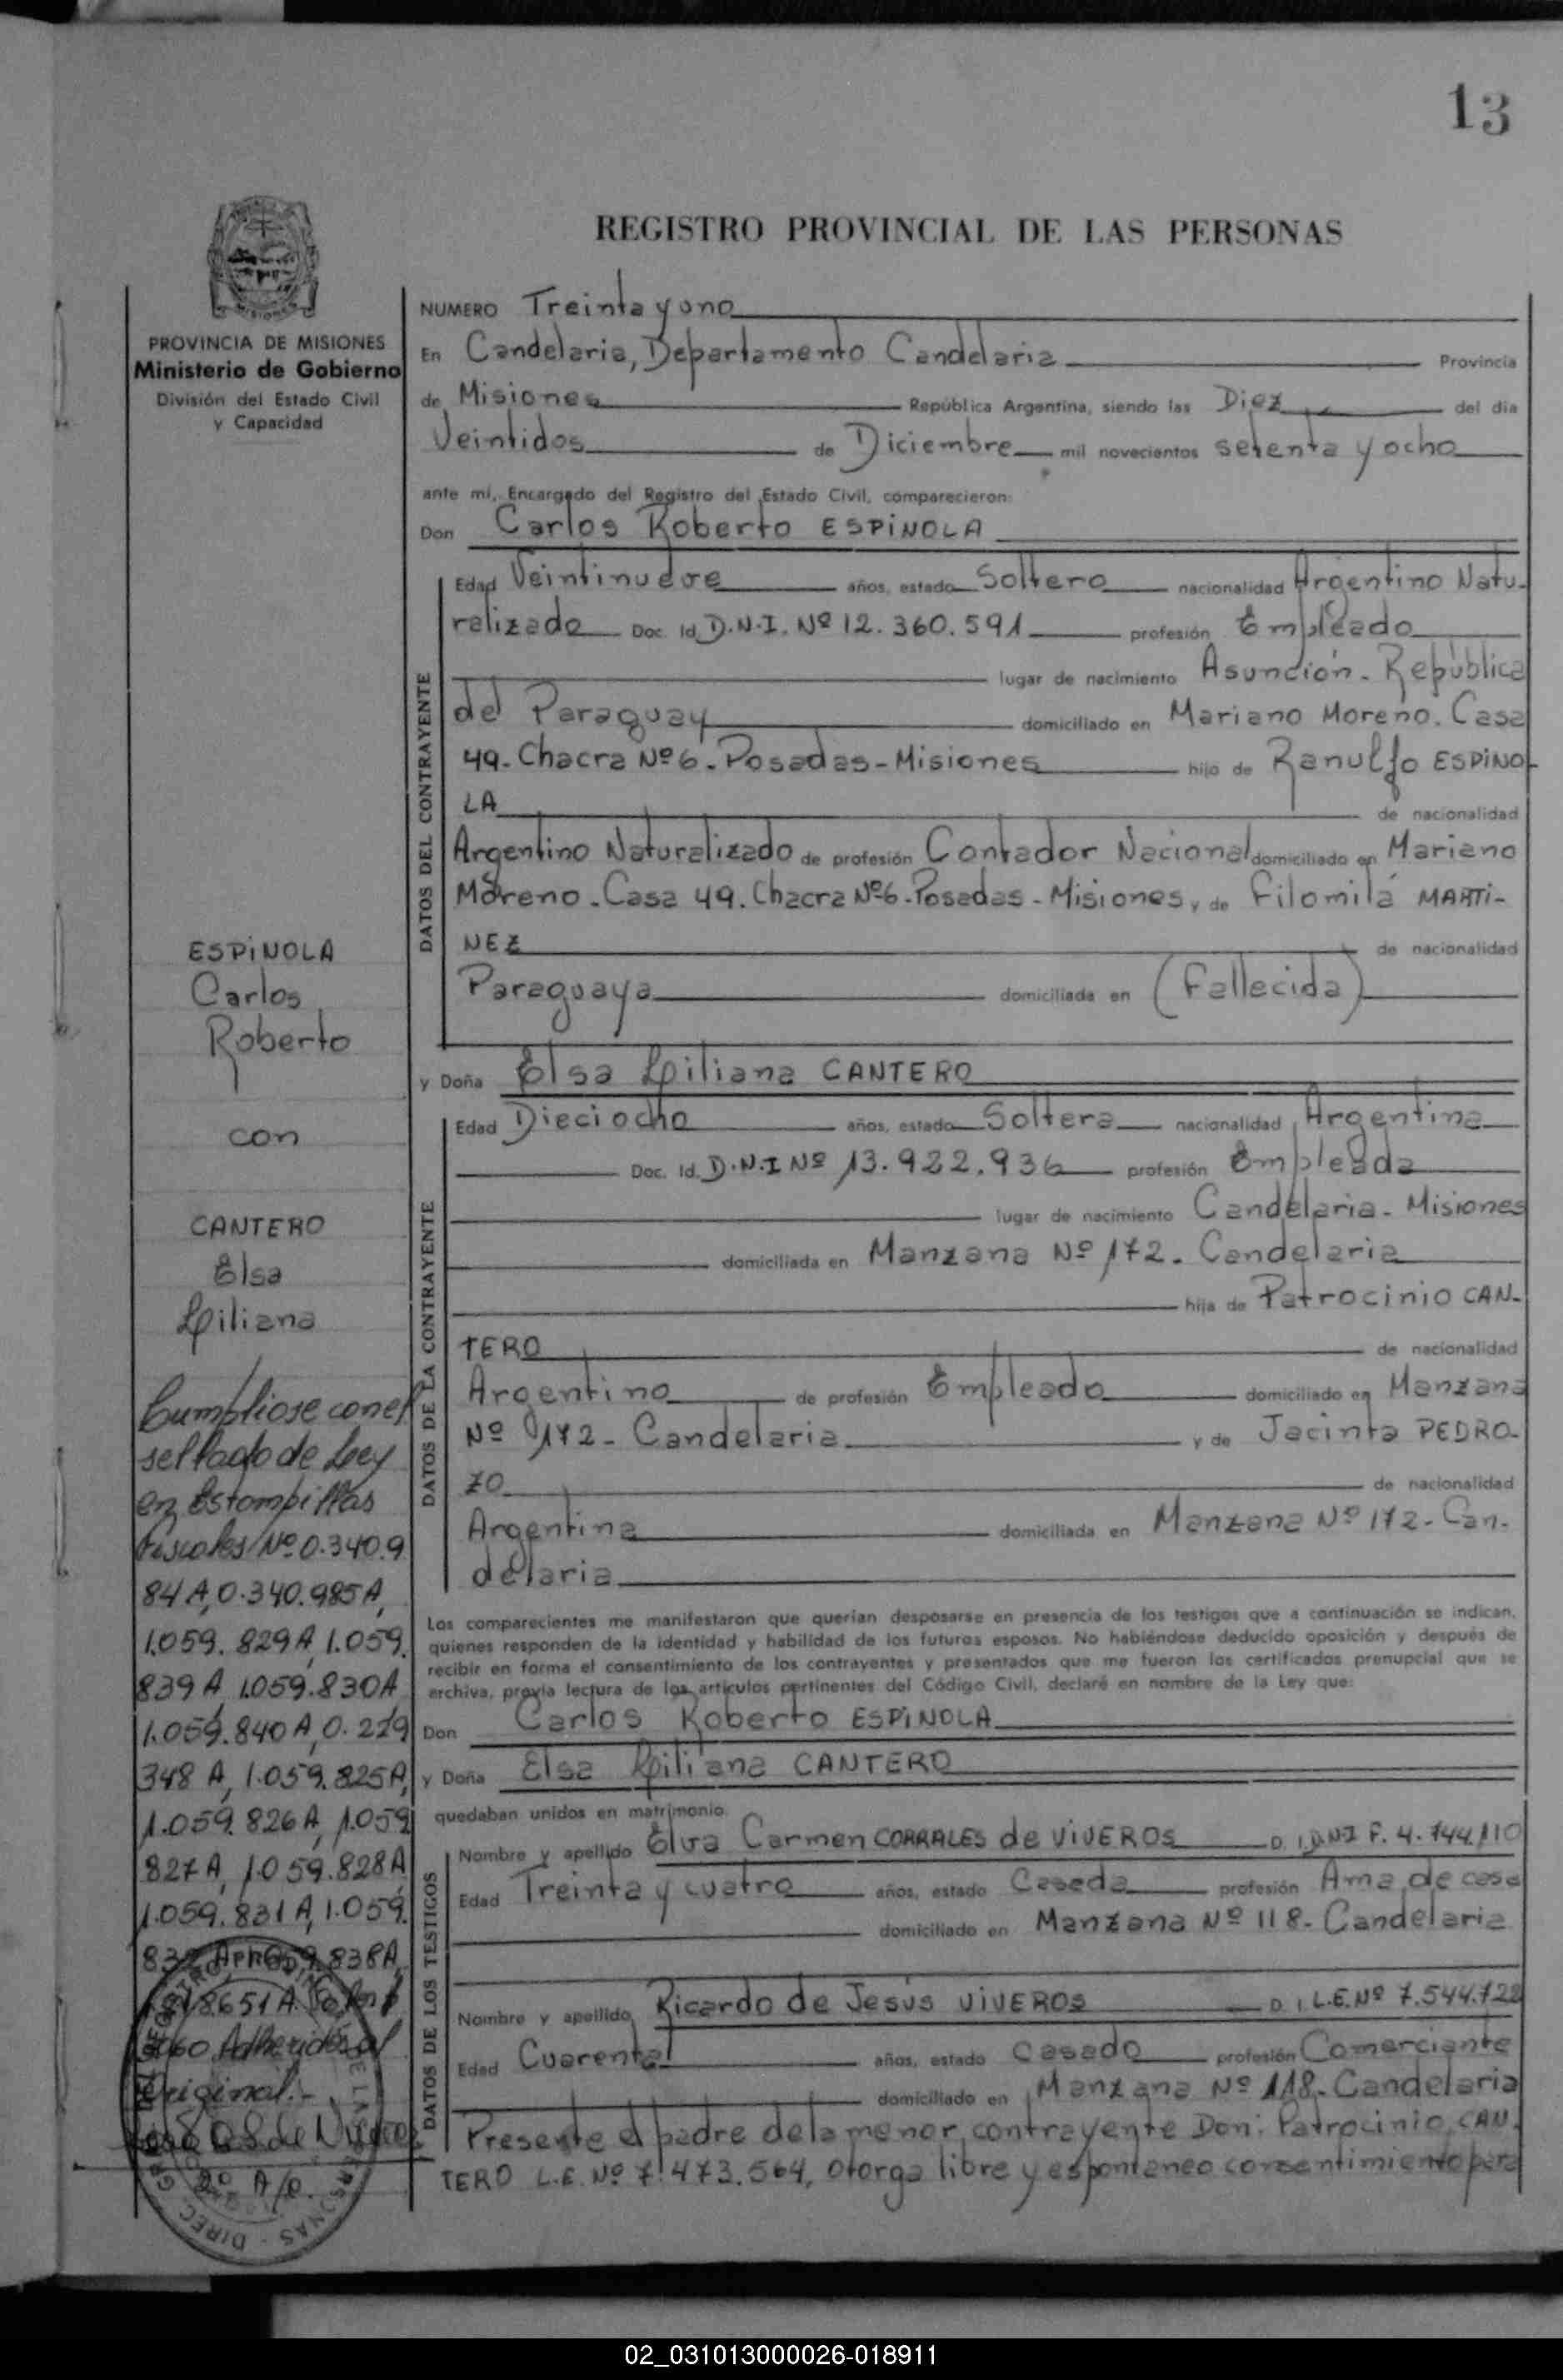 13
REGISTRO PROVINCIAL DE LAS PERSONAS
MISIONES
PROVINCIA DE MISIONES
Ministerio de Gobierno
División del Estado Civil
y Capacidad
NUMERO Treinta y uno
En Candelaria, Departamento Candelaria Provincia
de Misiones República Argentina, siendo las Diez del día
Veintidos de Diciembre mil novecientos setenta y ocho
ante mí, Encargado del Registro del Estado Civil, comparecieron:
Don Carlos Roberto ESPINOLA
DATOS DEL CONTRAYENTE
Edad Veintinueve años, estado Soltero nacionalidad Argentino Natu-
ralizado Doc. Id. D.N.I. Nº 12.360.591 profesión Empleado
lugar de nacimiento Asunción - República
del Paraguay domiciliado en Mariano Moreno. Casa
49 - Chacra Nº 6 - Posadas - Misiones hijo de Ranulfo ESPINO-
LA de nacionalidad
Argentino Naturalizado de profesión Contador Nacional domiciliado en Mariano
Moreno - Casa 49. Chacra Nº 6 - Posadas - Misiones y de Filomila MARTI-
NEZ de nacionalidad
Paraguaya domiciliada en (Fallecida)
y Doña Elsa Liliana CANTERO
DATOS DE LA CONTRAYENTE
Edad Dieciocho años, estado Soltera nacionalidad Argentina
Doc. Id. D.N.I Nº 13.922.936 profesión Empleada
lugar de nacimiento Candelaria - Misiones
domiciliada en Manzana Nº 172 - Candelaria
hija de Patrocinio CAN-
TERO de nacionalidad
Argentino de profesión Empleado domiciliado en Manzana
Nº 172 - Candelaria y de Jacinta PEDRO-
ZO de nacionalidad
Argentina domiciliada en Manzana Nº 172 - Can-
delaria
Los comparecientes me manifestaron que querían desposarse en presencia de los testigos que a continuación se indican,
quienes responden de la identidad y habilidad de los futuros esposos. No habiéndose deducido oposición y después de
recibir en forma el consentimiento de los contrayentes y presentados que me fueron los certificados prenupcial que se
archiva, previa lectura de los artículos pertinentes del Código Civil, declaré en nombre de la Ley que:
Don Carlos Roberto ESPINOLA
y Doña Elsa Liliana CANTERO
quedaban unidos en matrimonio
DATOS DE LOS TESTIGOS
Nombre y apellido Elva Carmen CORRALES de VIVEROS D. I. DNI F. 4.744.110
Edad Treinta y cuatro años, estado Casada profesión Ama de casa
domiciliado en Manzana Nº 118 - Candelaria
Nombre y apellido Ricardo de Jesús VIVEROS D. I. L.E. Nº 7.544.722
Edad Cuarenta años, estado Casado profesión Comerciante
domiciliado en Manzana Nº 118 - Candelaria
Presente el padre de la menor contrayente Don: Patrocinio CAN-
TERO L.E. Nº 7.473.564, otorga libre y espontaneo consentimiento para
ESPINOLA
Carlos
Roberto
con
CANTERO
Elsa
Liliana
Cumpliose con el
sellado de Ley
en Estampillas
Fiscales Nº 0.340.9
84 A, 0.340.985 A,
1.059.829 A, 1.059.
839 A 1.059.830 A
1.059.840 A, 0.229
348 A, 1.059.825 A,
1.059.826 A, 1.059
827 A, 1.059.828 A
1.059.831 A, 1.059.
838 A,
Adheridos al
Original.-
02_031013000026-018911